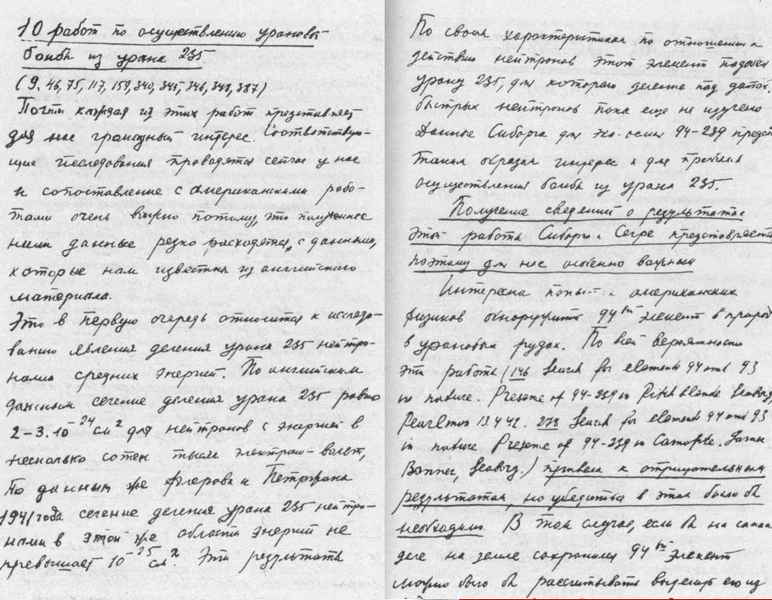 10 работ по осуществлению урановой
бомбы из урана 235
(9, 46, 75, 117, 159, 340, 345, 346, 348, 387)
Почти каждая из этих работ представляет
для нас громадный интерес. Соответствую-
щие исследования проводятся сейчас у нас
и сопоставление с американскими рабо-
тами очень важно потому, что полученные
ними данные резко расходятся с данными,
которые нам известны из английского
материала.
Это в первую очередь относится к исследо-
ванию явления деления урана 235 нейтро-
нами средних энергий. По английским
данным сечение деления урана 235 равно
2-3.10⁻²⁴ см² для нейтронов с энергией в
несколько сотен тысяч электрон-вольт,
по данным же Флерова и Петржака
1941 года сечение деления урана 235 нейтро-
нами в этой же области энергий не
превышает 10⁻²⁵ см². Эти результаты
По своим характеристикам по отношению к
действию нейтронов этот элемент подобен
урану 235, для которого деление под
быстрых нейтронов пока еще не изучено
Данные Сиборга для эка-осмия 94-239
таким образом интерес и для проблемы
осуществления бомбы из урана 235.
Получение сведений о результатах
этой работы Сиборга и Сегре представляется
поэтому для нас особенно важным
Интересна американских
физиков обнаружить 94ый элемент в природе
в урановых рудах. По всей вероятности
эти работы (146 Search for element 94 and 93
in nature. Presence of 94-239 in Pitchblende Seaborg,
Pearlman 13 4 42. 273 Search for element 94 and 93
in nature Presence of 94-239 in
Seaborg.) привели к отрицательным
результатам, но убедиться в этом было бы
необходимо. В том случае, если бы на самом
деле на земле сохранился 94ый элемент
можно было бы рассчитывать выделить его из